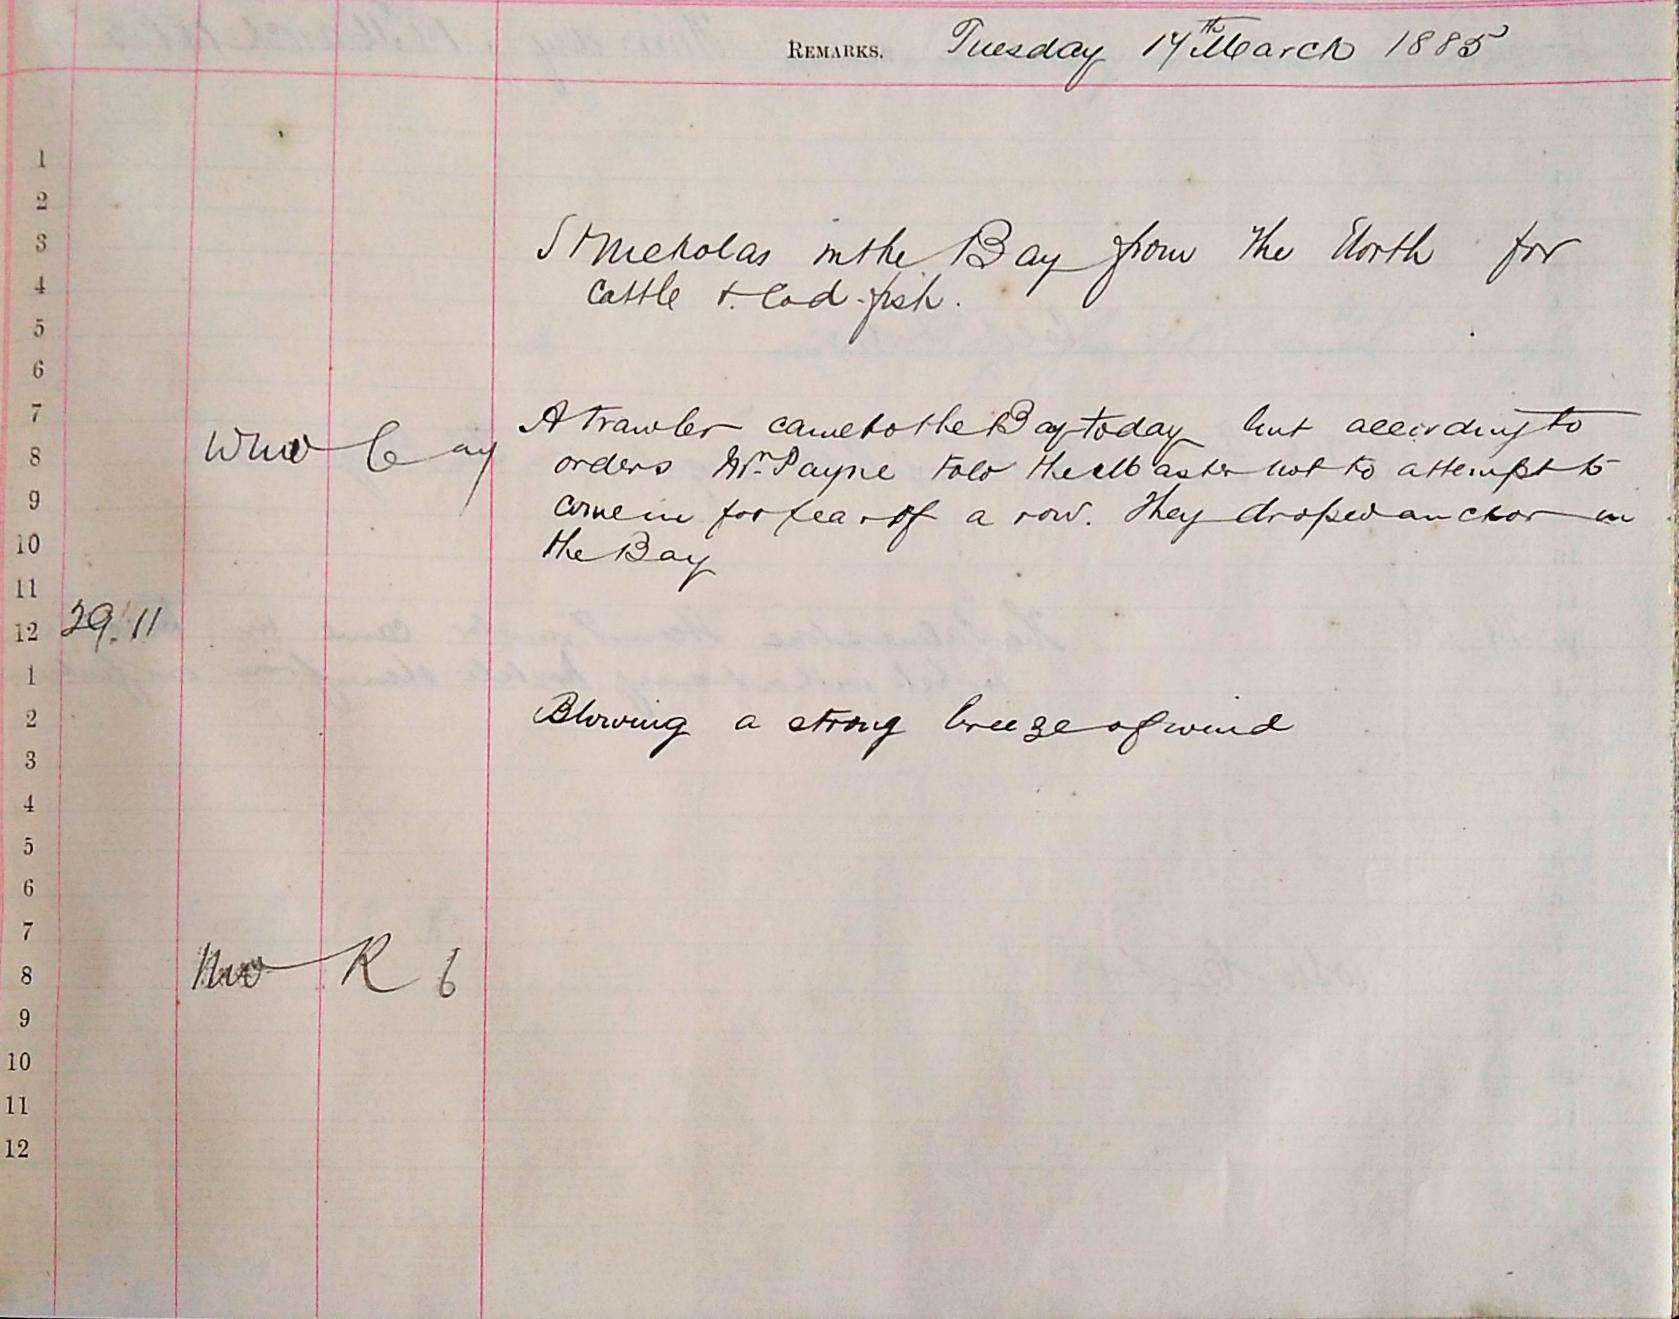 REMARKS. Tuesday 17th March 1885
1
2
3 St Nicholas in the Bay from the North for
4 Cattle & Cod-fish.
5
6
7 A trawler came to the Bay today but according to
8 WNW C orders Mr. Payne told the Master not to attempt to
9 come in for fear of a row. They droped anchor in
10 the Bay
11
12 29.11
1
2 Blowing a strong breeze of wind
3
4
5
6
7
8 NW R 6
9
10
11
12